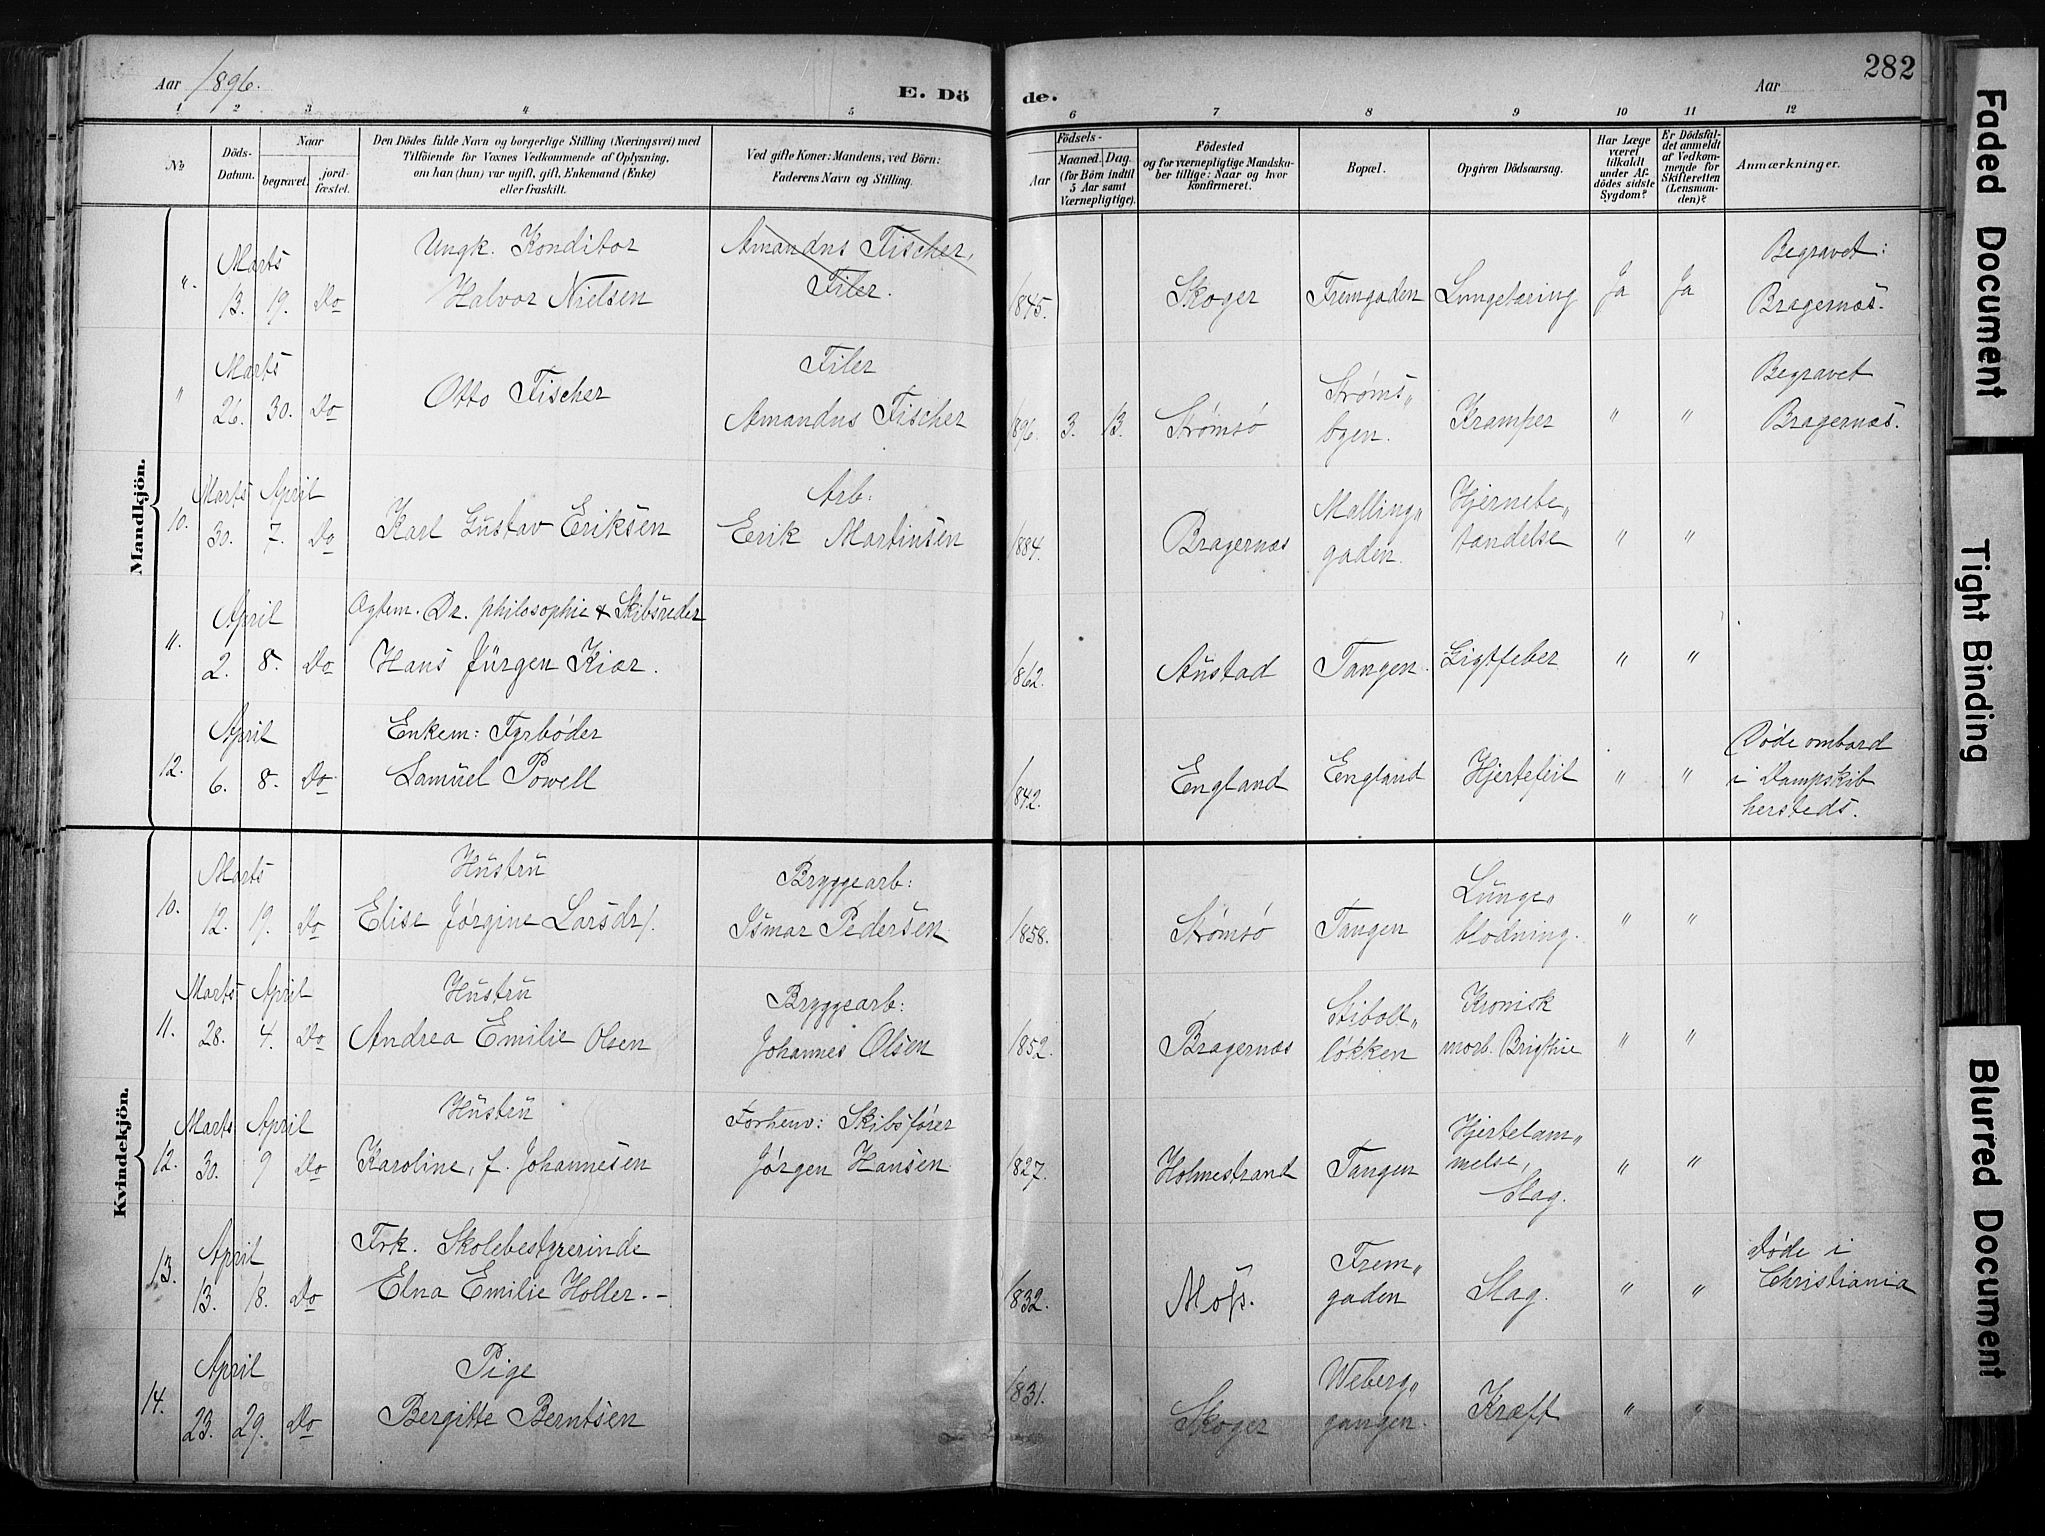 Aar 1896.
E. Dö de.
Aar
282
1 2 3 4 5 6 7 8 9 10 11 12
No
Döds-Datum.
Naar
begravet.
jord-fæstet.
Den Dödes fulde Navn og borgerlige Stilling (Næringsvei) med
Tilföiende for Voxnes Vedkommende af Oplysning,
om han (hun) var ugift, gift, Enkemand (Enke)
eller fraskilt.
Ved gifte Koner: Mandens, ved Börn:
Faderens Navn og Stilling.
Födsels-
Aar
Maaned. Dag.
(for Börn indtil
5 Aar samt
Værnepligtige).
Födested
og for værnepligtige Mandska-
ber tillige: Naar og hvor
konfirmeret.
Bopæl.
Opgiven Dödsaarsag.
Har Læge
været
tilkaldt
under Af-
dödes sidste
Sygdom?
Er Dödsfal-
det anmeldt
af Vedkom-
mende for
Skifteretten
(Lensman-
den)?
Anmærkninger.
Mandkjön.
" Marts 13. 19. Do
Ungk. Konditor
Halvor Nielsen
Amandus Fischer,
Filer.
1845. Skoger Fremgaden Lungetæring Ja Ja
Begravet:
Bragernæs.
" Marts 26. 30. Do
Otto Fischer
Filer
Amandus Fischer
1896. 3. 13. Strømsø
Strøms„
byen.
Kramper " "
Begravet
Bragernæs.
10. Marts 30. April 7. Do
Karl Gustav Eriksen
Arb:
Erik Martinsen
1884. Bragernæs
Malling„
gaden.
Hjernebe„
tændelse
" "
11. April 2. 8. Do
Ogtem. Dr. philosophie & Skibsreder
Hans Jürgen Kiær.
1862. Austad Tangen. Gigtfeber " "
12. April 6. 8. Do
Enkem: Fyrbøder
Samuel Powell
1842. England England Hjertefeil " "
Døde ombord
i Dampskib
hersteds.
Kvindekjön.
10. Marts 12. 19. Do
Hustru
Elise Jørgine Larsdr/.
Bryggearb:
Ismar Pedersen
1858. Strømsø Tangen
Lunge„
blodning.
" "
11. Marts 28. April 4. Do
Hustru
Andrea Emilie Olsen
Bryggearb:
Johannes Olsen
1852. Bragernæs
Stibolt„
løkken
Kronisk
morb. Brigthie
" "
12. Marts 30. April 9 Do
Hustru
Karoline, f. Johannesen
Forhenv: Skibsfører
Jørgen Hansen
1827. Holmestrand Tangen
Hjertelam„
melse,
Slag.
" "
13. April 13. 18. Do
Frk. Skolebestyrerinde
Elna Emilie Holler. -
1832. Moss.
Frem„
gaden
Slag. " "
Døde i
Christiania
14. April 23. 29. Do
Pige
Bergitte Berntsen
1831. Skoger
Weberg„
gangen.
Kræft " "
Faded Document
Tight Binding
Blurred Document